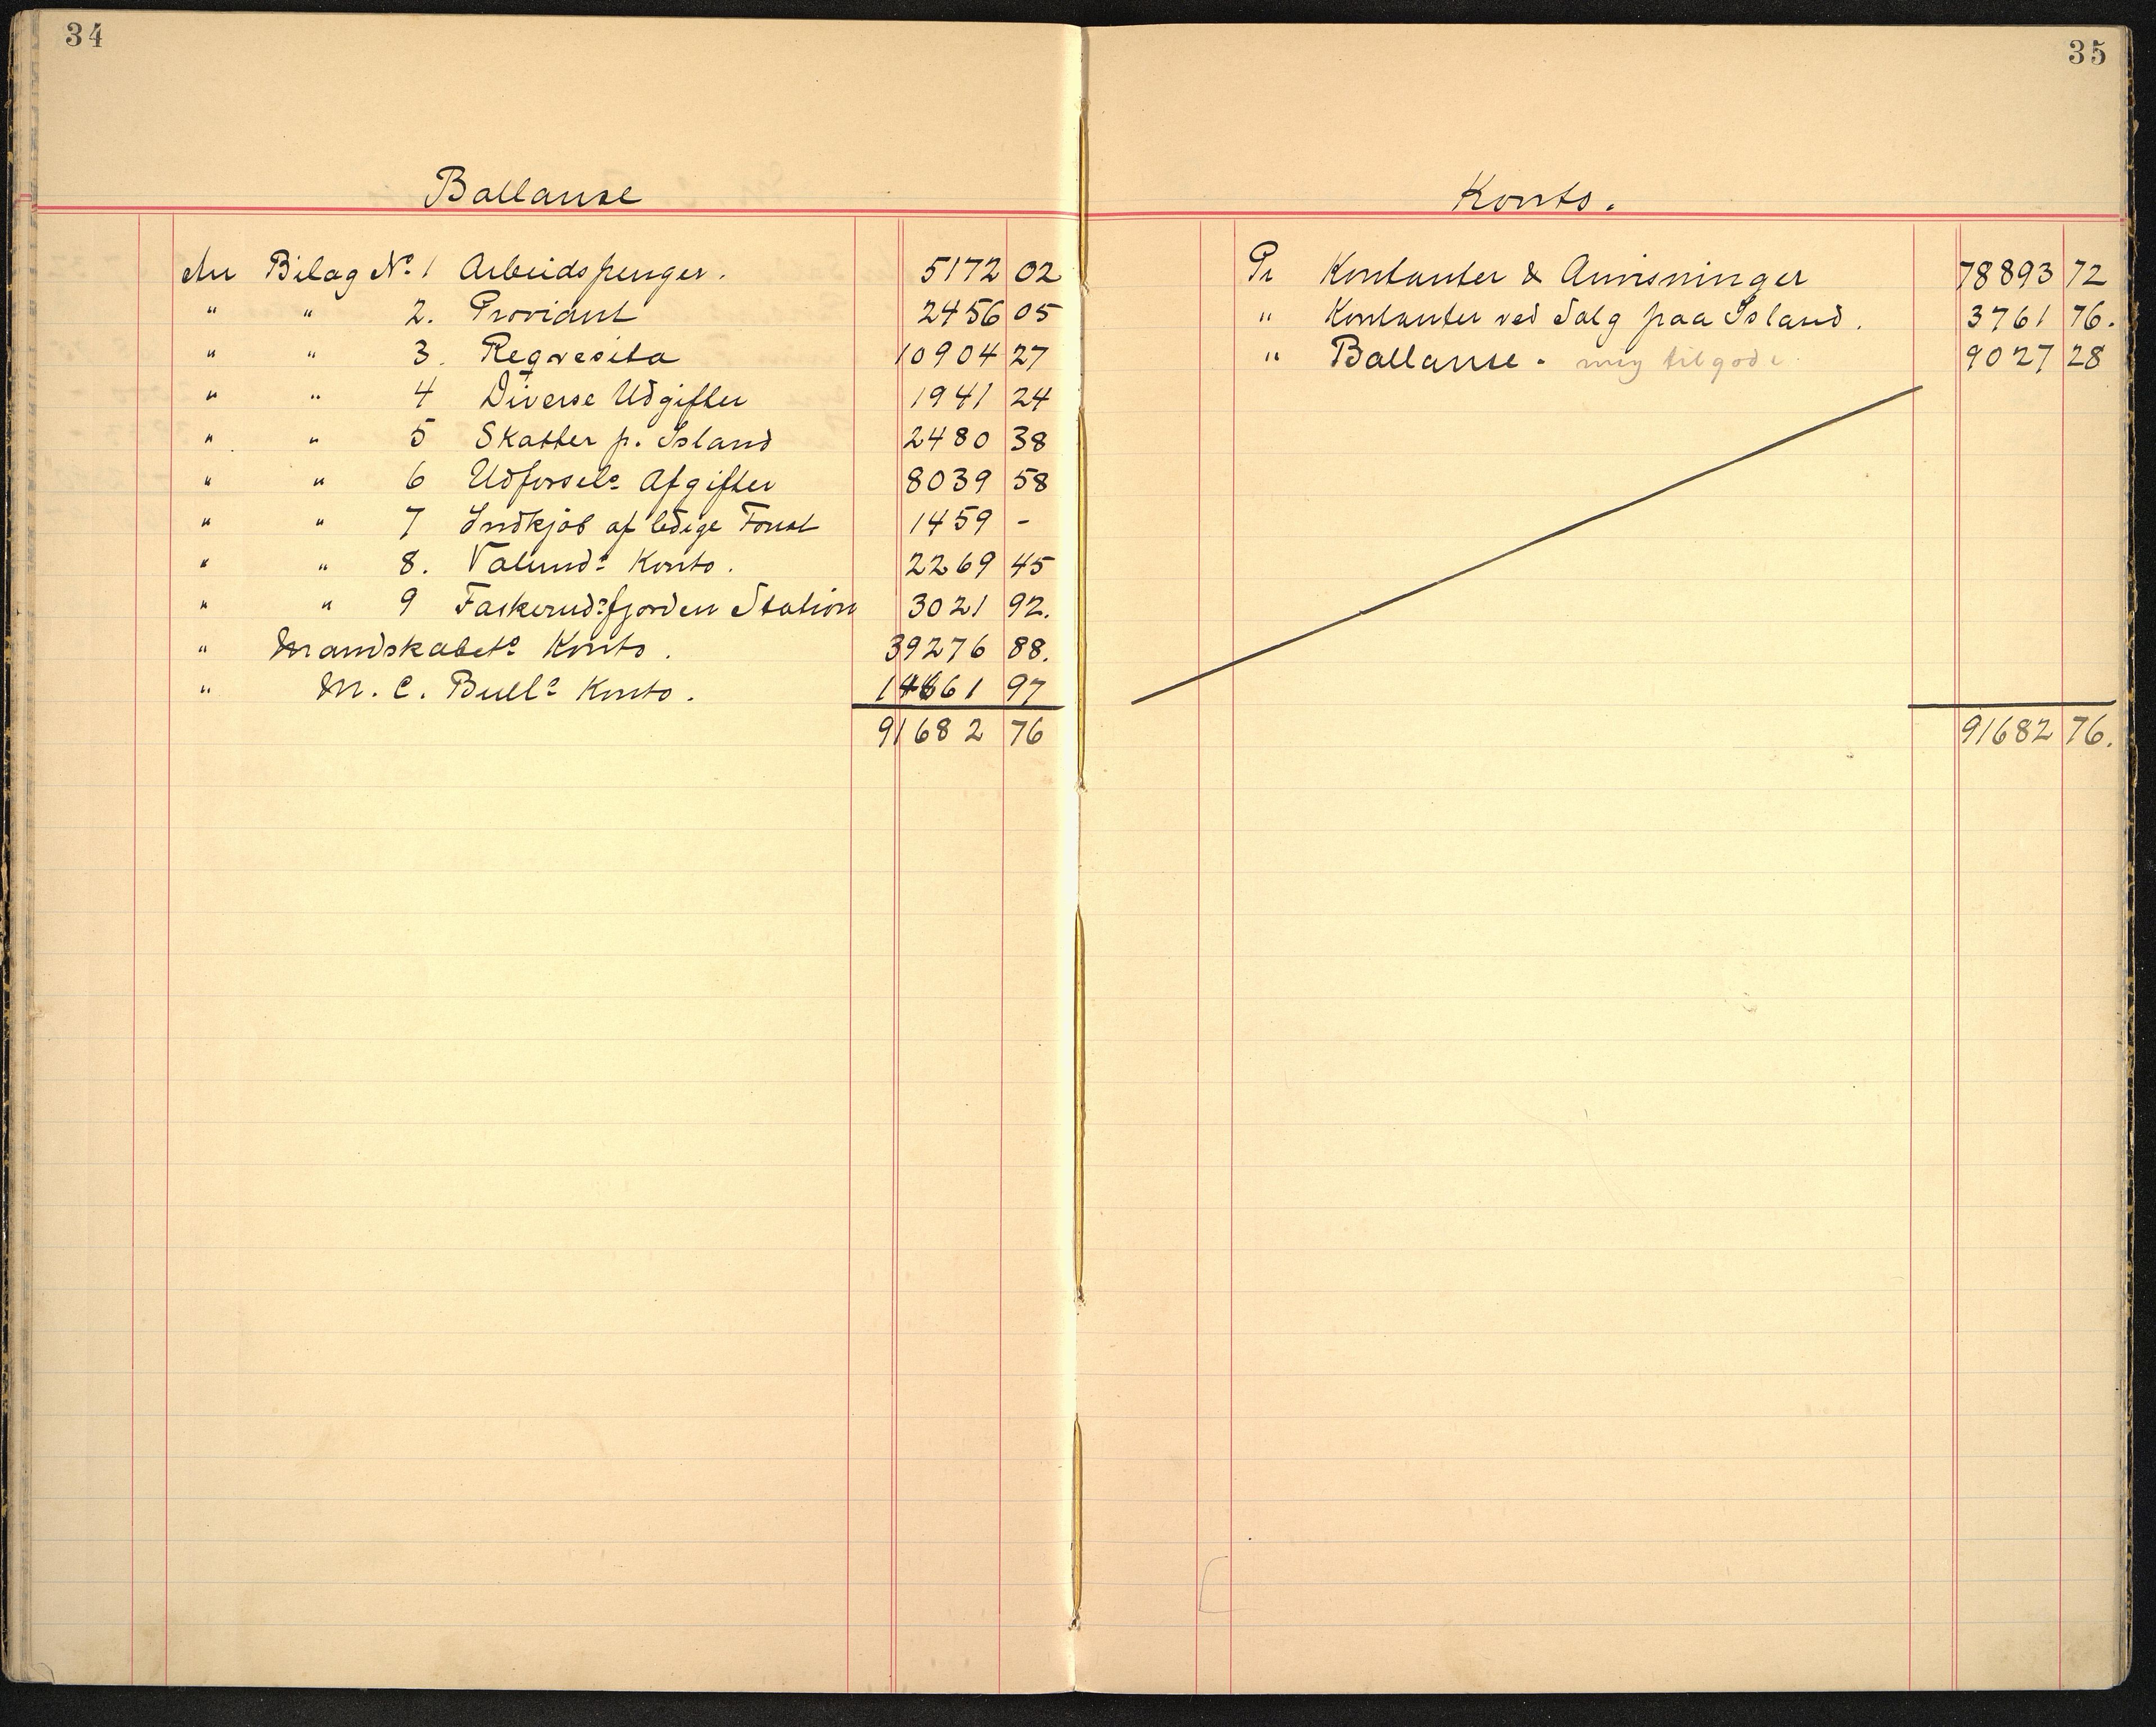 34
Ballanse
An Bilag No. 1 Arbeidspenger. 5172 02
" " 2. Proviant 2456 05
" " 3. Reqvesita 10904 27
" " 4 Diverse Udgifter 1941 24
" " 5 Skatter p. Island 2480 38
" " 6 Udforsels Afgifter 8039 58
" " 7 Indkjöb af ledige Foust 1459 -
" " 8. Valunds Konto. 2269 45
" " 9 Faskerudsfjorden Station 3021 92.
" Mandskabets Konto. 39276 88.
" M. C. Bulls Konto. 14661 97
91682 76
35
Konto.
Pr Kontanter & Anvisninger 78893 72
" Kontanter ved Salg paa Island. 3761 76.
" Ballanse. mig tilgode 9027 28
91682 76.